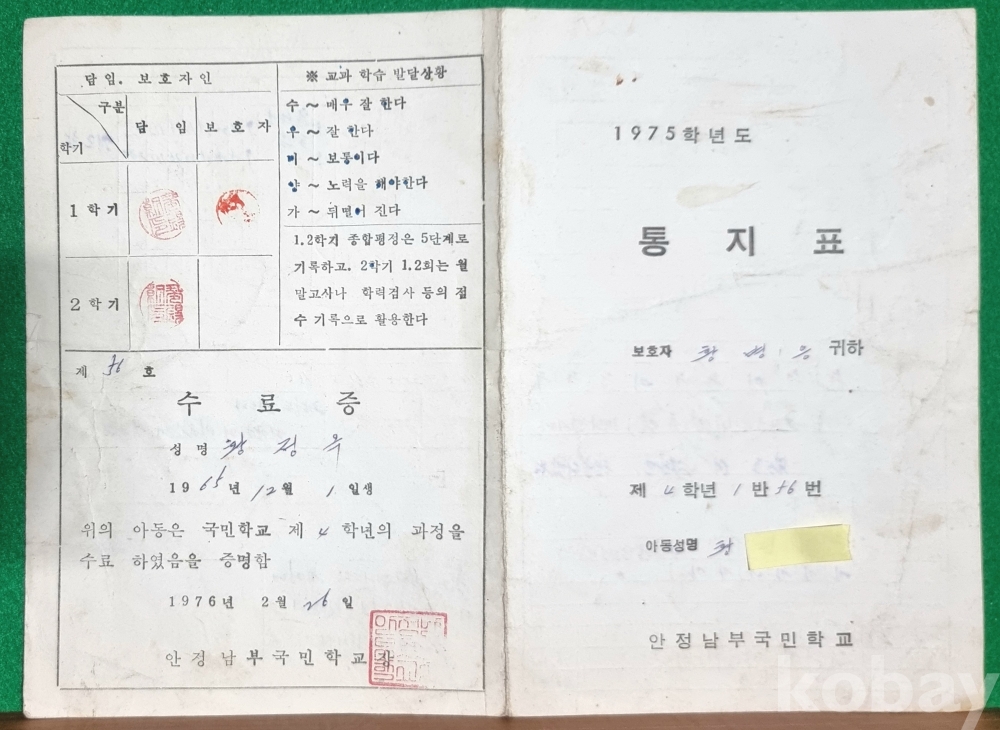 담임. 보호자인
구분
학기
담 임
보호자
1학기
2학기
※ 교과 학습 발달상황
수 ~ 매우 잘 한다
우 ~ 잘 한다
미 ~ 보통이다
양 ~ 노력을 해야한다
가 ~ 뒤떨어 진다
1.2학기 종합평정은 5단계로
기록하고, 2학기 1.2회는 월
말고사나 학력검사 등의 점
수 기록으로 활용한다
제 56 호
수 료 증
성 명 황 정 우
1965년 12월 1일생
위의 아동은 국민학교 제 4 학년의 과정을
수료 하였음을 증명함
1976년 2월 26일
안정남부국민학교장
1975학년도
통 지 표
보호자 황 병 귀하
제 4학년 1반 56번
아동성명 황
안정남부국민학교
kobay